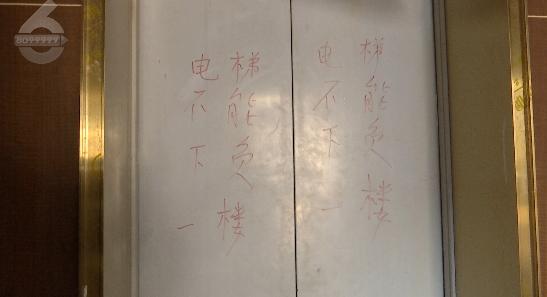 8099999
电梯
不能
下负
一楼
电梯
不能
下负
一楼